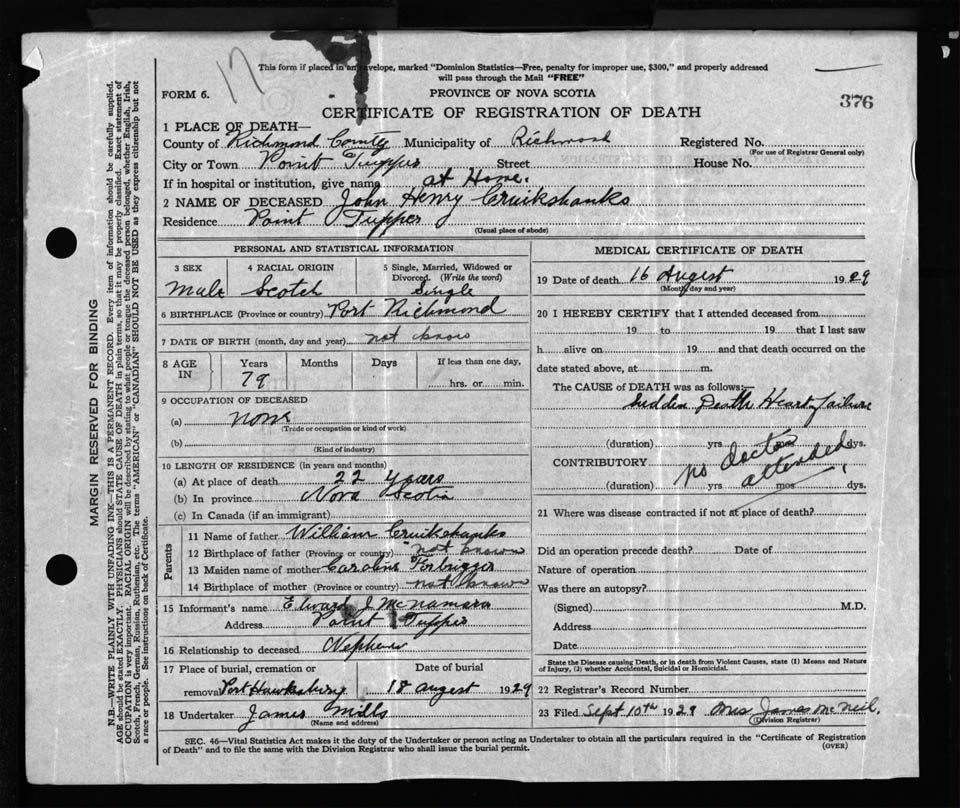 17
This form if placed in an envelope, marked "Dominion Statistics—Free, penalty for improper use, $300," and properly addressed
will pass through the Mail "FREE"
FORM 6. PROVINCE OF NOVA SCOTIA
376
CERTIFICATE OF REGISTRATION OF DEATH
1 PLACE OF DEATH—
County of Richmond County Municipality of Richmond Registered No.
(For use of Registrar General only)
City or Town Point Tupper Street House No.
If in hospital or institution, give name at Home.
2 NAME OF DECEASED John Henry Cruikshanks
Residence Point Tupper
(Usual place of abode)
PERSONAL AND STATISTICAL INFORMATION
3 SEX 4 RACIAL ORIGIN 5 Single, Married, Widowed or
Divorced. (Write the word)
Male Scotch Single
6 BIRTHPLACE (Province or country) Port Richmond
7 DATE OF BIRTH (month, day and year) not know
8 AGE IN Years Months Days If less than one day,
79 hrs. or min.
9 OCCUPATION OF DECEASED
(a) none
(Trade or occupation or kind of work)
(b)
(Kind of industry)
10 LENGTH OF RESIDENCE (in years and months)
(a) At place of death 22 years
(b) In province Nova Scotia
(c) In Canada (if an immigrant)
Parents
11 Name of father William Cruikshanks
12 Birthplace of father (Province or country) not known
13 Maiden name of mother Caroline
14 Birthplace of mother (Province or country) not know
15 Informant's name Edward J McNamara
Address Point Tupper
16 Relationship to deceased Nephew
17 Place of burial, cremation or Date of burial
removal Port Hawkesbury 18 august 1929
18 Undertaker James Mills
(Name and address)
MEDICAL CERTIFICATE OF DEATH
19 Date of death 16 August 1929
(Month, day and year)
20 I HEREBY CERTIFY that I attended deceased from
19 to 19 that I last saw
h alive on 19 and that death occurred on the
date stated above, at m.
The CAUSE of DEATH was as follows:—
Sudden Death Heart Failure
(duration) yrs mos dys.
CONTRIBUTORY no doctor
attended
(duration) yrs mos dys.
21 Where was disease contracted if not at place of death?
Did an operation precede death? Date of
Nature of operation
Was there an autopsy?
(Signed) M.D.
Address
Date
State the Disease causing Death, or in death from Violent Causes, state (1) Means and Nature
of Injury, (2) whether Accidental, Suicidal or Homicidal.
22 Registrar's Record Number
23 Filed Sept 10th 1929 Mrs James McNeil.
(Division Registrar)
SEC. 46—Vital Statistics Act makes it the duty of the Undertaker or person acting as Undertaker to obtain all the particulars required in the "Certificate of Registration
of Death" and to file the same with the Division Registrar who shall issue the burial permit.
(OVER)
MARGIN RESERVED FOR BINDING
N.B.—WRITE PLAINLY WITH UNFADING INK—THIS IS A PERMANENT RECORD. Every item of information should be carefully supplied.
AGE should be stated EXACTLY. PHYSICIANS should STATE CAUSE OF DEATH in plain terms, so that it may be properly classified. Exact statement of
OCCUPATION is very important. RACIAL ORIGIN will be described by stating to what people or tongue the deceased person belonged, whether English, Irish,
Scotch, French, German, Russian, Ruthenian, etc. The terms "AMERICAN" or "CANADIAN" SHOULD NOT BE USED as they express citizenship but not
a race or people. See instructions on back of Certificate.